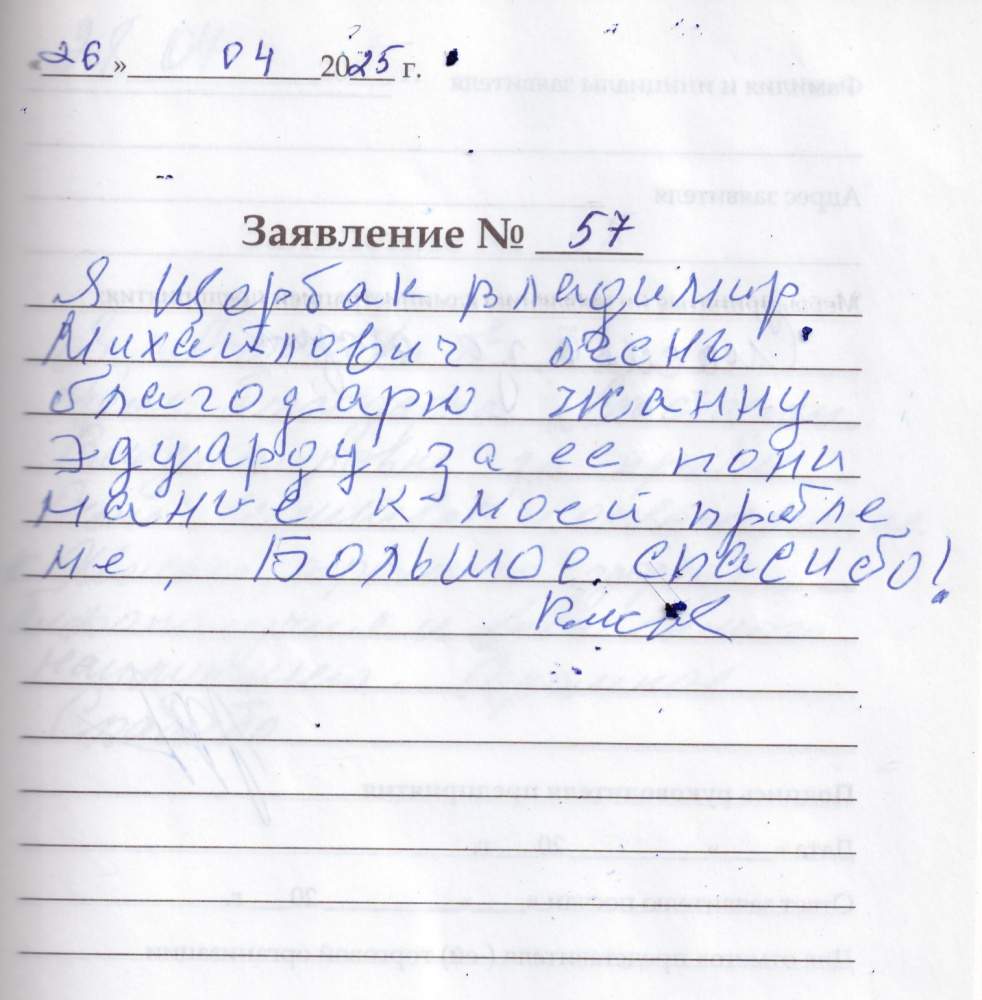 26» 04 2025 г.
Заявление № 57
Я Щербак Владимир
Михайлович очень
благодарю Жанну
Эдуарду за ее пони
мание к моей пробле
ме, Большое спасибо!